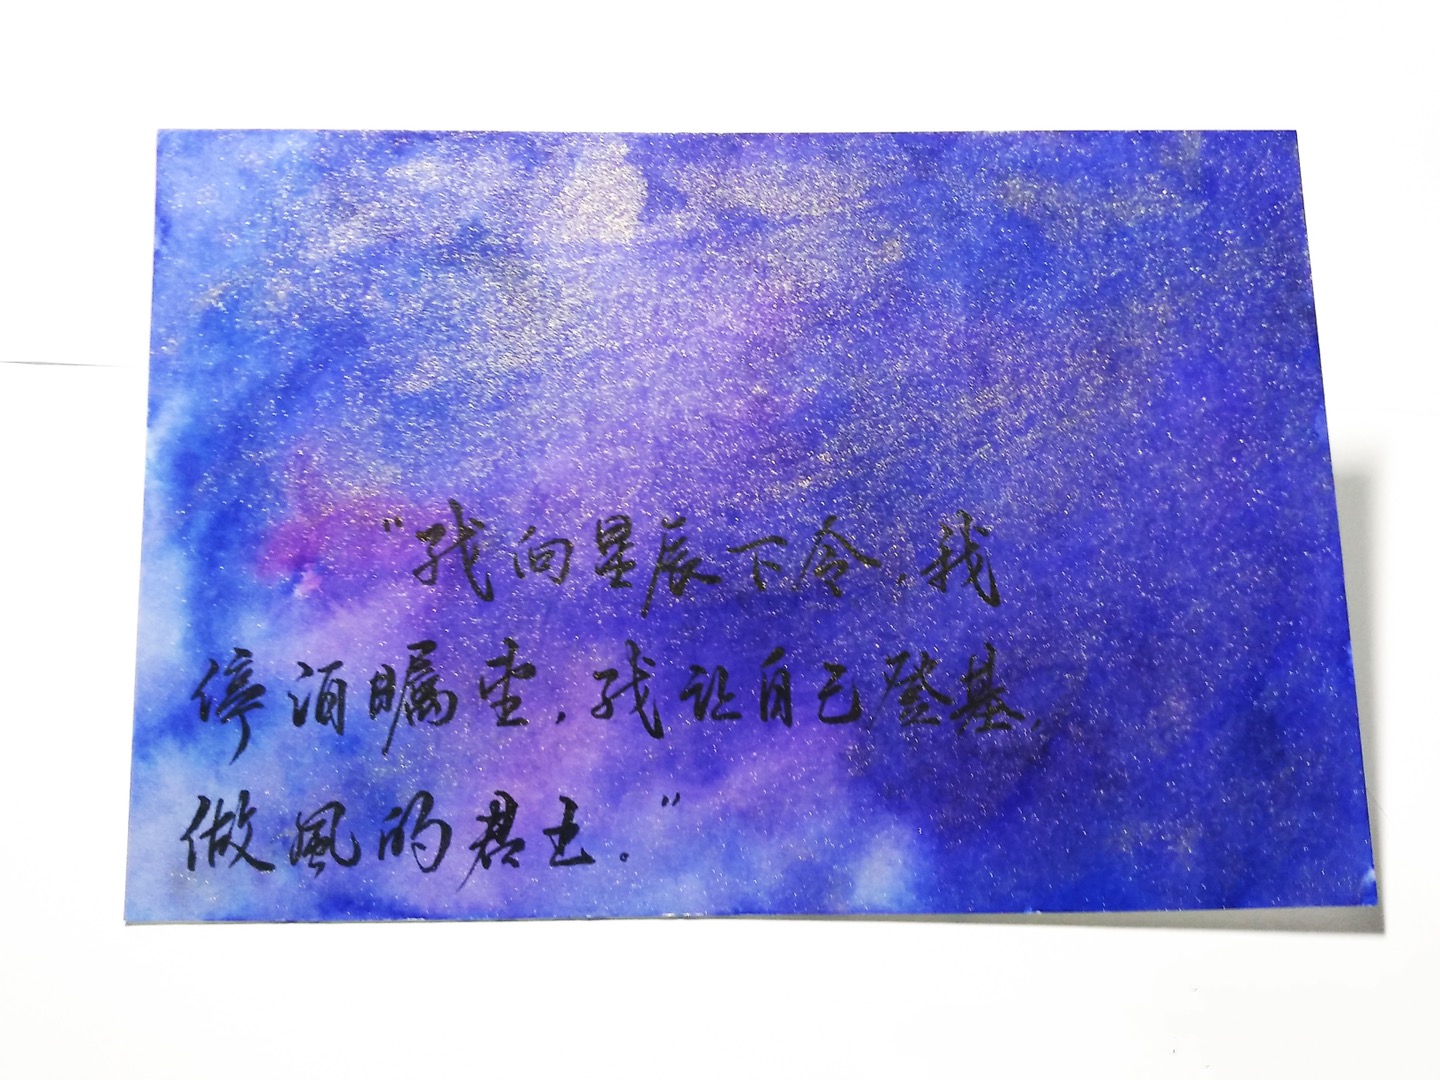 “我向星辰下令，我
停泊瞩望，我让自己登基，
做風的君王。”